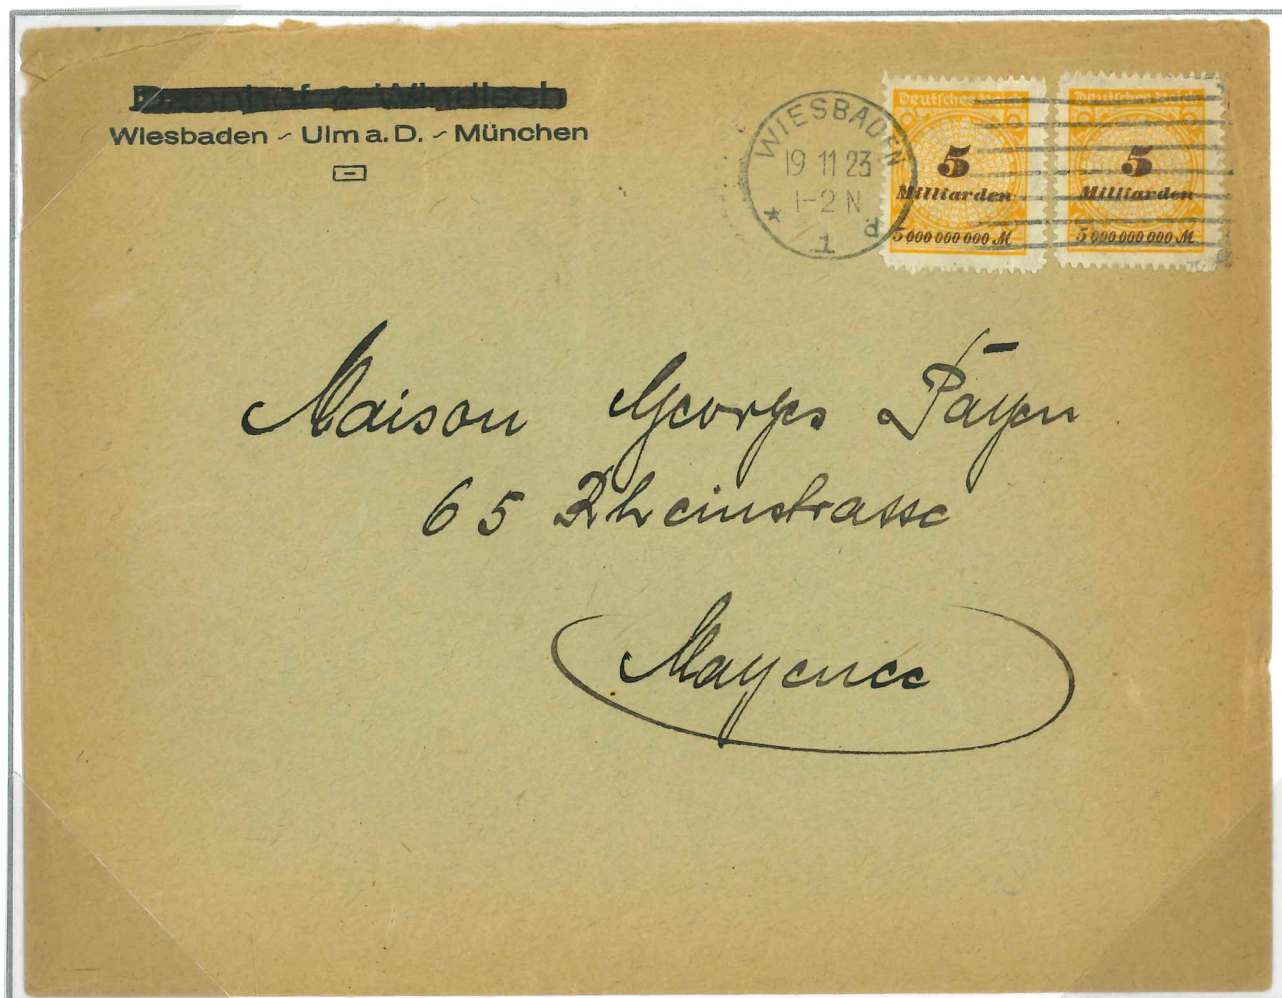 & Windisch
Wiesbaden - Ulm a. D. - München
WIESBADEN
19 11 23
1-2 N
* 1 d
Deutsches Reich
5
Milliarden
5 000 000 000 M
Deutsches Reich
5
Milliarden
5 000 000 000 M
Maison Georges Payen
65 Rheinstrasse
Mayence